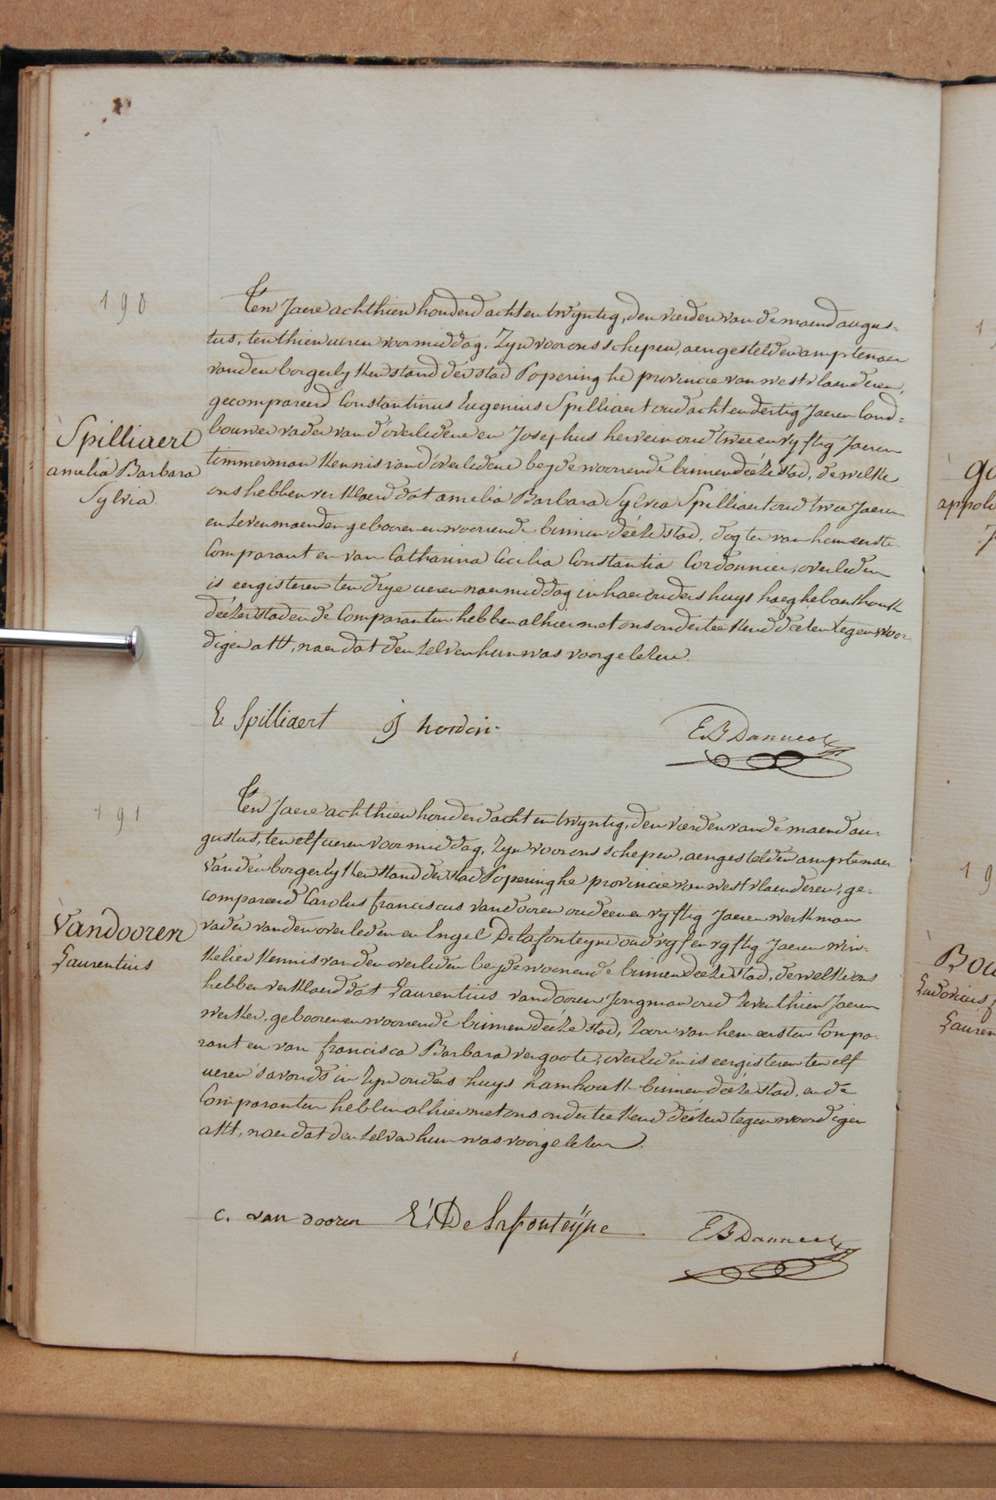 190
Spilliaert
amelia Barbara
Sylvia
Ten Jaere achthien honderd acht en twyntig, den vierden van de maend augus-
tus, ten thien ueren voormiddag. Zyn voor ons schepen, aengestelden amptenaer
van den borgerlyken stand der stad Poperinghe provincie van westvlaenderen,
gecompareerd Constantinus Eugenius Spilliaert oud acht en dertig Jaeren land-
bouwer vader van d'overledene en Josephus hervein oud twee en vyftig Jaeren
timmerman kennis van d'overledene beyde woonende binnen deéze stad, dewelke
ons hebben verklaerd dat amelia Barbara Sylvia Spilliaert oud twee Jaeren
en zeven maenden geboren en woonende binnen deéze stad, dogter van hem eerste
Comparant en van Catharina Cecilia Constantia Cordonnier, overleden
is eergisteren ten drye ueren naermiddag in haer ouders huys haeghebaerthoek
deézer stad en de Comparanten hebben alhier met ons onderteekend deézen tegenwoor-
digen akt, naer dat den zelven hun was voorgelezen.
C Spilliaert
EB Danneel
191
Vandooren
Laurentius
Ten Jaere achthien honderd acht en twyntig, den vierden van de maend au-
gustus, ten elf ueren voormiddag, Zyn voor ons schepen, aengestelden amptenaer
van den borgerlyken stand der stad Poperinghe provincie van westvlaenderen, ge-
compareerd Carolus franciscus vandooren oud een en vyftig Jaeren werkman
vader van den overleden en Engel Delafonteyne oud vyf en vyftig Jaeren win-
kelier kennis van den overleden beyde woonende binnen deéze stad, dewelke ons
hebben verklaerd dat Laurentius vandooren Jongman oud zeventhien Jaeren
werker, geboren en woonende binnen deéze stad, zoon van hem eersten Compa-
rant en van francisca Barbara vergoote, overleden is eergisteren ten elf
ueren s'avonds in zyn ouders huys hamhoek binnen deéze stad, en de
Comparanten hebben alhier met ons onderteekend deézen tegenwoordigen
akt, naer dat den zelven hun was voorgelezen.
c. van dooren
E: De Lafonteÿne
EB Danneel
19
Bou
Ludovicus
Lauren
appolo